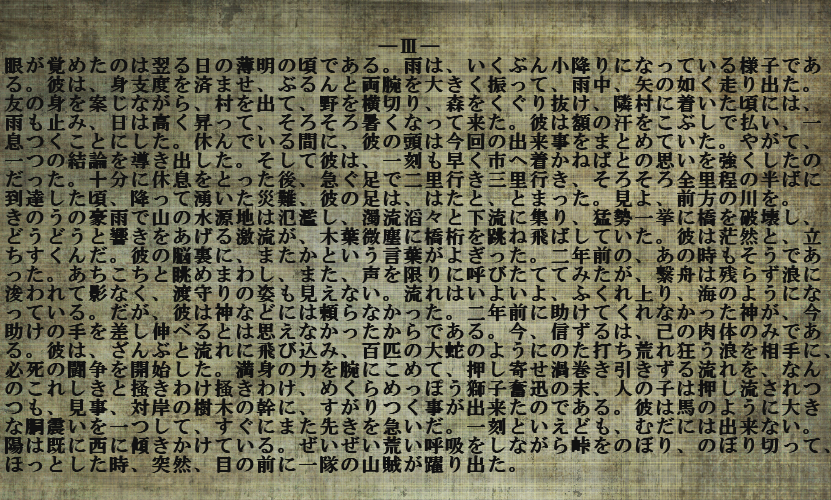 ―Ⅲ―
眼が覚めたのは翌る日の薄明の頃である。雨は、いくぶん小降りになっている様子であ
る。彼は、身支度を済ませ、ぶるんと両腕を大きく振って、雨中、矢の如く走り出た。
友の身を案じながら、村を出て、野を横切り、森をくぐり抜け、隣村に着いた頃には、
雨も止み、日は高く昇って、そろそろ暑くなって来た。彼は額の汗をこぶしで払い、一
息つくことにした。休んでいる間に、彼の頭は今回の出来事をまとめていた。やがて、
一つの結論を導き出した。そして彼は、一刻も早く市へ着かねばとの思いを強くしたの
だった。十分に休息をとった後、急ぐ足で二里行き三里行き、そろそろ全里程の半ばに
到達した頃、降って湧いた災難、彼の足は、はたと、とまった。見よ、前方の川を。
きのうの豪雨で山の水源地は氾濫し、濁流滔々と下流に集り、猛勢一挙に橋を破壊し、
どうどうと響きをあげる激流が、木葉微塵に橋桁を跳ね飛ばしていた。彼は茫然と、立
ちすくんだ。彼の脳裏に、またかという言葉がよぎった。二年前の、あの時もそうであ
った。あちこちと眺めまわし、また、声を限りに呼びたててみたが、繋舟は残らず浪に
浚われて影なく、渡守りの姿も見えない。流れはいよいよ、ふくれ上り、海のようにな
っている。だが、彼は神などには頼らなかった。二年前に助けてくれなかった神が、今
助けの手を差し伸べるとは思えなかったからである。今、信ずるは、己の肉体のみであ
る。彼は、ざんぶと流れに飛び込み、百匹の大蛇のようにのた打ち荒れ狂う浪を相手に、
必死の闘争を開始した。満身の力を腕にこめて、押し寄せ渦巻き引きずる流れを、なん
のこれしきと掻きわけ掻きわけ、めくらめっぽう獅子奮迅の末、人の子は押し流されつ
つも、見事、対岸の樹木の幹に、すがりつく事が出来たのである。彼は馬のように大き
な胴震いを一つして、すぐにまた先きを急いだ。一刻といえども、むだには出来ない。
陽は既に西に傾きかけている。ぜいぜい荒い呼吸をしながら峠をのぼり、のぼり切って、
ほっとした時、突然、目の前に一隊の山賊が躍り出た。